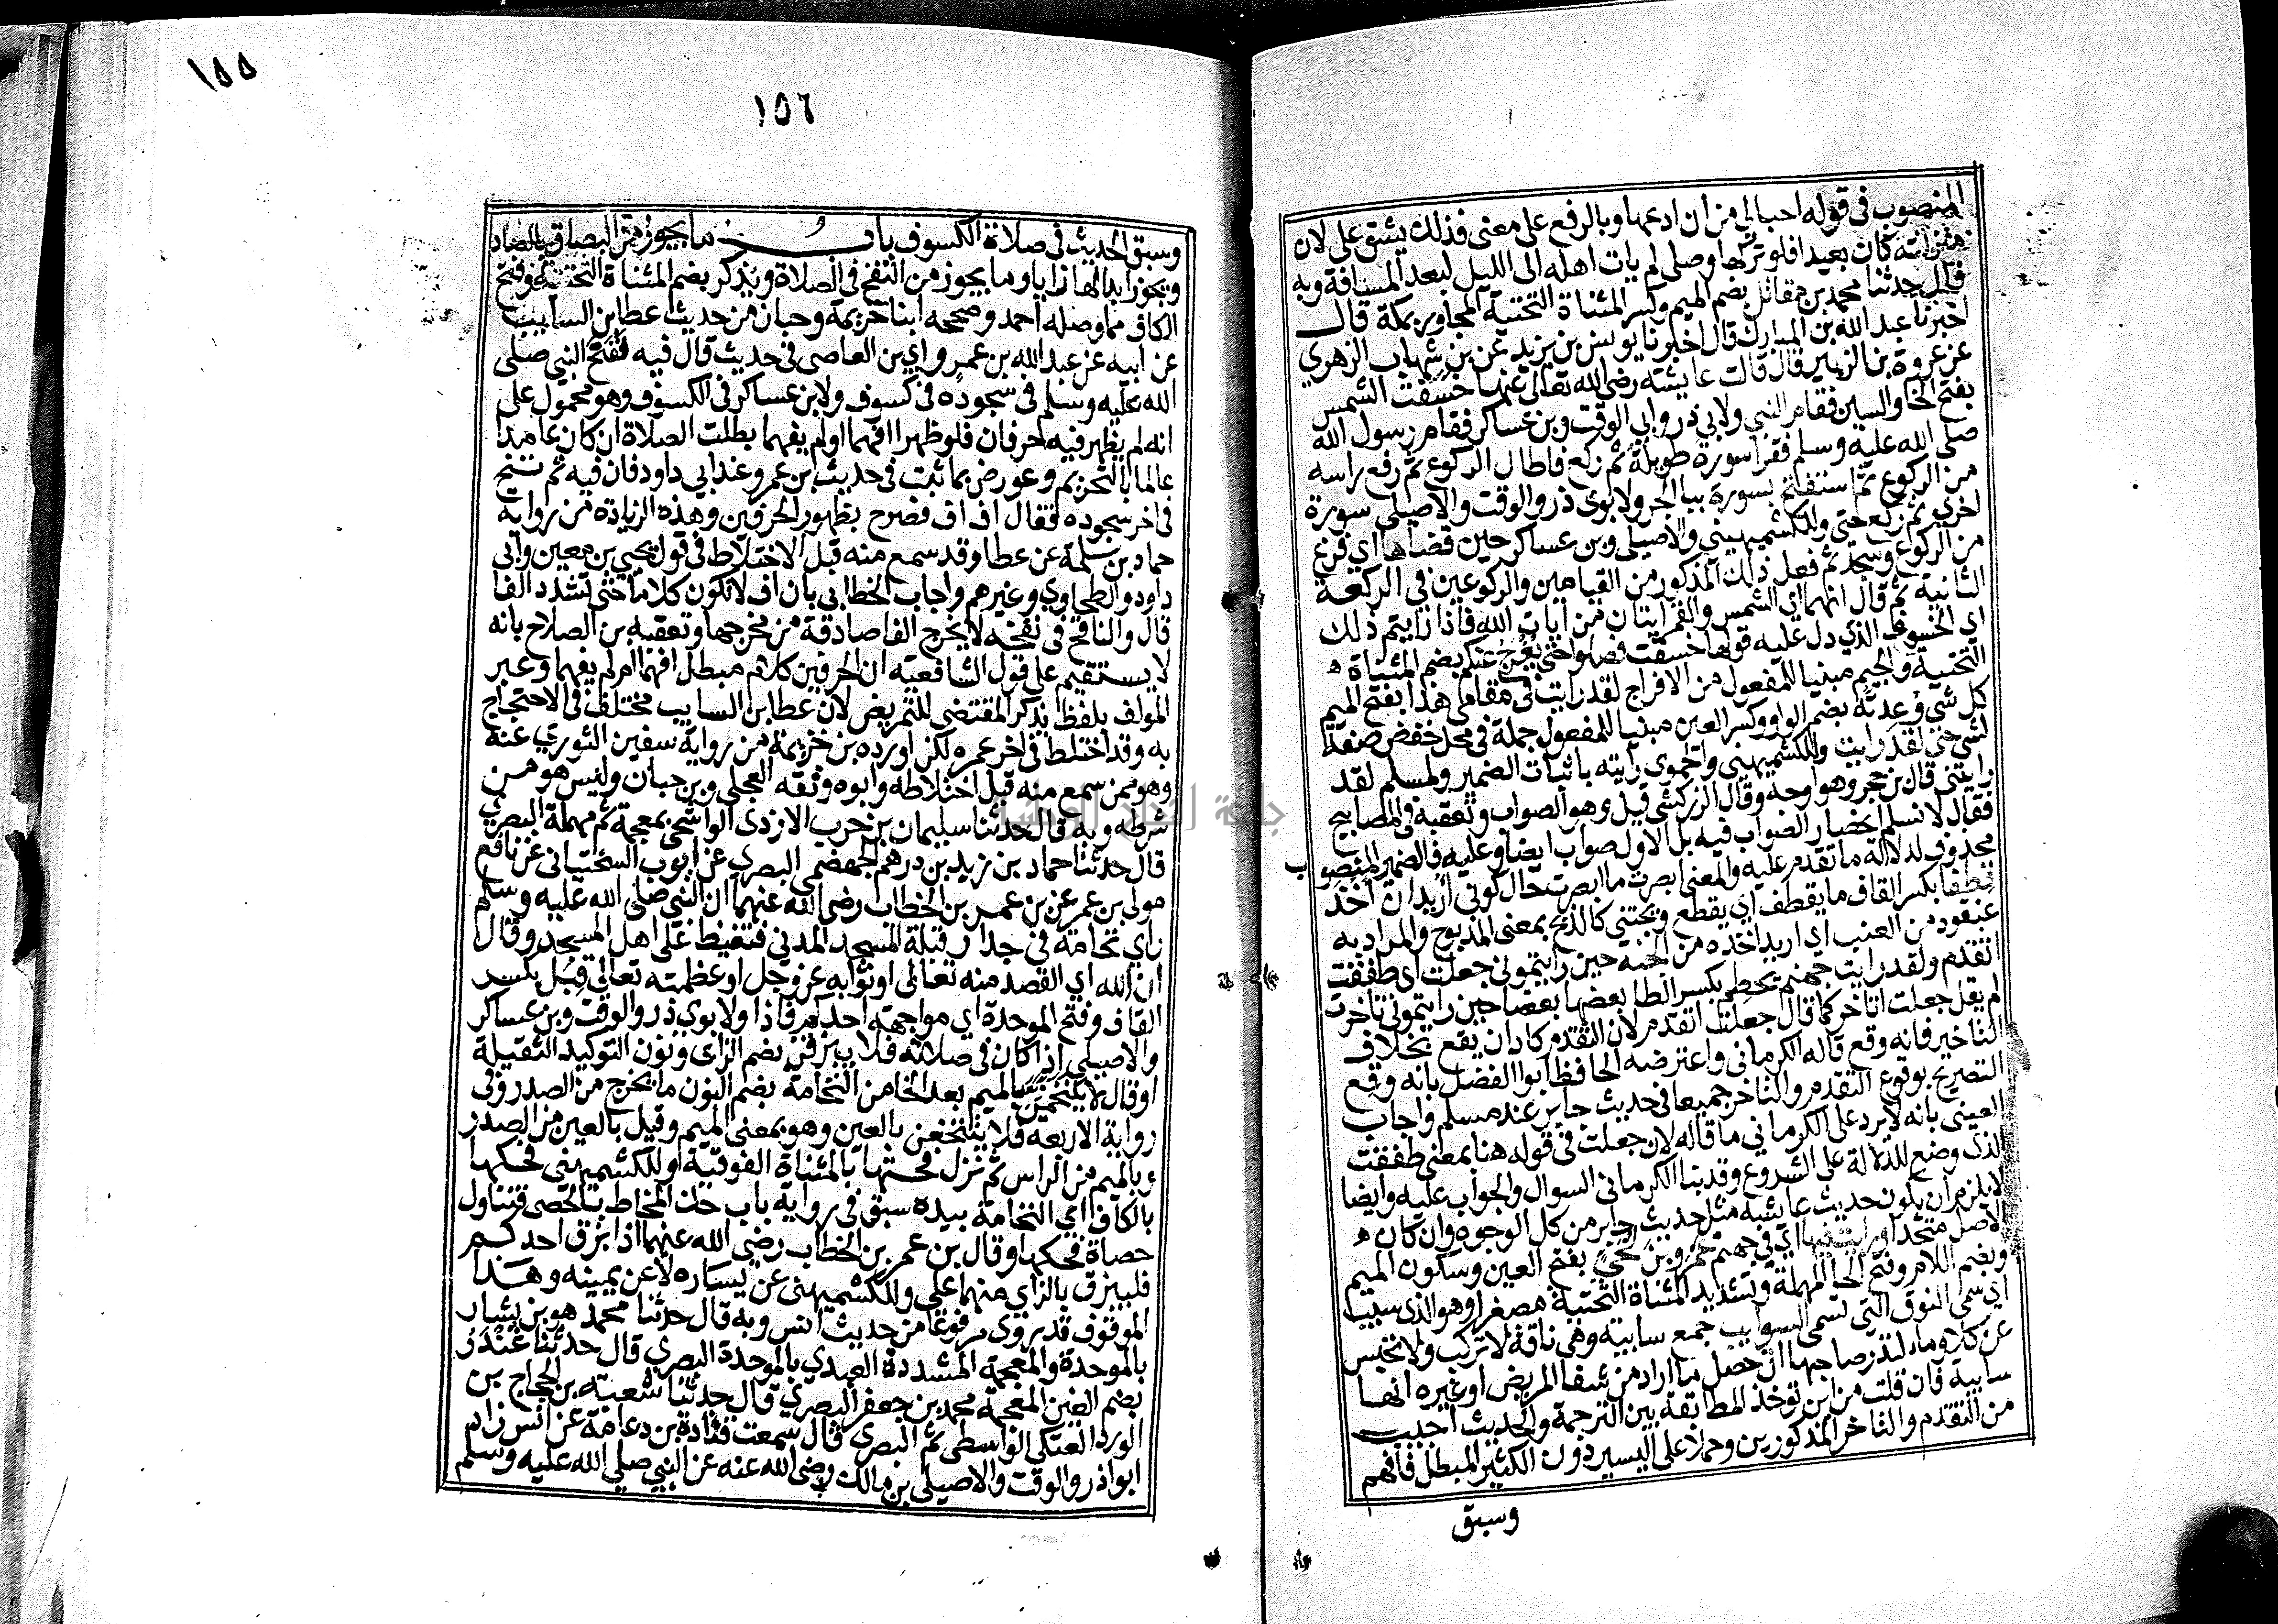 المنصوب في قوله احب الي من ان ادعها وبالرفع على معنى فذلك يشق علي لان
منزله كان بعيدا فلو تركها وصلى لم يات اهله الى الليل لبعد المسافة وبه
قال حدثنا محمد بن مقاتل بضم الميم وكسر المثناة التحتية المجاور بمكة قال
اخبرنا عبد الله بن المبارك قال اخبرنا يونس بن يزيد عن بن شهاب الزهري
عن عروة بن الزبير قال قالت عايشة رضي الله تعالى عنها خسفت الشمس
بفتح الخا والسين فقام النبي ولابي ذر وابي الوقت وبن عساكر فقام رسول الله
صلى الله عليه وسلم فقرا سورة طويلة ثم ركع فاطال الركوع ثم رفع راسه
من الركوع ثم استفتح بسورة ببا الجر ولابوي ذر والوقت والاصيلي سورة
اخرى ثم ركع حتى وللكشميهيني والاصيلي وبن عساكر حين قضاها اي فرغ
من الركوع وسجد ثم فعل ذلك المذكور من القيامين والركوعين في الركعة
الثانية ثم قال انهما اي الشمس والقمر ايتان من ايات الله فاذا رايتم ذلك
اي الخسوف الذي دل عليه قولها خسفت فصلوا حتى يفرج عنكم بضم المثناة
التحتية والجيم مبنيا للمفعول من الافراج لقد رايت في مقامي هذا بفتح الميم
كل شي وعدته بضم الواو وكسر العين مبنيا للمفعول جملة في محل خفض صفة
لشي حتى لقد رايت وللكشميهني والحموي رايته باثبات الضمير ولمسلم لقد
رايتني قال بن حجر وهو اوجه وقال الزركشي قيل وهو الصواب وتعقبه في المصابيح
فقال لا نسلم انحصار الصواب فيه بل الاول صواب ايضا وعليه فالضمير المنصوب
محذوف لدلالة ما تقدم عليه والمعنى ابصرت ما ابصرت حال كوني اريد ان اخذ
قطفا بكسر القاف ما يقطف اي يقطع ويجتنى كالذبح بمعنى المذبوح والمراد به
عنقود من العنب اي اريد اخذه من الجنة حين رايتموني جعلت اي طفقت
اتقدم ولقد رايت جهنم يحطم بكسر الطا بعضها بعضا حين رايتموني تاخرت
لم يقل جعلت اتاخر كما قال جعلت اتقدم لان التقدم كاد ان يقع بخلاف
التاخير فانه وقع قاله الكرماني واعترضه الحافظ ابوا الفضل بانه وقع
التصريح بوقوع التقدم والتاخر جميعا في حديث جابر عند مسلم واجاب
العيني بانه لا يرد على الكرماني ما قاله لان جعلت في قوله هنا بمعنى طفقت
الذي وضع للدلالة على الشروع وقد بنا الكرماني السوال والجواب عليه وايضا
لا يلزم ان يكون حديث عايشة مثل حديث جابر من كل الوجوه وان كان
الاصل متحدا ورايت فيها اي في جهنم عمرو بن لحي بفتح العين وسكون الميم
وبضم اللام وفتح الحا المهملة وتشديد المثناة التحتية مصغرا وهو الذي سيب
اي سمى النوق التي تسمى السوايب جمع سايبة وهي ناقة لا تركب ولا تحبس
عن كلا وما لنذر صاحبها ان حصل ما اراد من شفا المريض او غيره انها
سايبة فان قلت من اين توخذ المطابقة بين الترجمة والحديث اجيب
من التقدم والتاخر المذكورين وحملا على اليسير دون الكثير المبطل فافهم
وسبق
١٥٥
١٥٦
وسبق الحديث في صلاة الكسوف باب ما يجوز من البصاق بالصاد
ويجوز ابدالها زايا وما يجوز من النفخ في الصلاة ويذكر بضم المثناة التحتية وفتح
الكاف مما وصله احمد وصححه ابنا خزيمة وحبان من حديث عطا بن السايب
عن ابيه عن عبد الله بن عمرو اي بن العاصي في حديث قال فيه نفخ النبي صلى
الله عليه وسلم في سجوده في كسوف ولابن عساكر في الكسوف وهو محمول على
انه لم يظهر فيه حرفان فلو ظهرا افهما او لم يفهما بطلت الصلاة ان كان عامدا
عالما بالتحريم وعورض بما ثبت في حديث ابن عمرو عند ابي داود فان فيه ثم نفخ
في اخر سجوده فقال اف اف فصرح بظهور الحرفين وهذه الزيادة من رواية
حماد بن سلمة عن عطا وقد سمع منه قبل الاختلاط في قول يحيى بن معين وابي
داود والطحاوي وغيرهم واجاب الخطابي بان اف لا تكون كلاما حتى تشدد الفا
قال والنافخ في نفخه لا يخرج الفا صادقة من مخرجها وتعقبه بن الصلاح بانه
لا يستقيم على قول الشافعية ان الحرفين كلام مبطل افهما ام لم يفهما وعبر
المولف بلفظ يذكر المقتضي للتمريض لان عطا بن السايب مختلف في الاحتجاج
به وقد اختلط في اخر عمره لكن اورده بن خزيمة من رواية سفين الثوري عنه
وهو ممن سمع منه قبل اختلاطه وابوه وثقه العجلي وبن حبان وليس هو من
شرطه وبه قال حدثنا سليمان بن حرب الازدي الواشحي بمعجمة ثم مهملة البصري
قال حدثنا حماد بن زيد بن درهم الجهضمي البصري عن ايوب السختياني عن نافع
مولى بن عمر عن بن عمر بن الخطاب رضي الله عنهما ان النبي صلى الله عليه وسلم
راي نخامة في جدار قبلة المسجد المدني فتغيظ على اهل المسجد وقال
ان الله اي القصد منه تعالى او ثوابه عز وجل او عظمته تعالى قبل بكسر
القاف وفتح الموحدة اي مواجهة احدكم فاذا ولابوي ذر والوقت وبن عساكر
والاصيلي اذا كان في صلاته فلا يبزقن بضم الزاي ونون التوكيد الثقيلة
او قال لا يتنخمن بالميم بعد الخا من النخامة بضم النون ما يخرج من الصدر وفي
رواية الاربعة فلا يتنخعن بالعين وهو بمعنى الميم وقيل بالعين من الصدر
وبالميم من الراس ثم نزل فحتها بالمثناة الفوقية وللكشميهني فحكها
بالكاف اي النخامة بيده سبق في رواية باب حك المخاط بالحصى فتناول
حصاة فحكها وقال بن عمر بن الخطاب رضي الله عنهما اذا بزق احدكم
فليبزق بالزاي منهما على وللكشميهني عن يساره لا عن يمينه وهذا
الموقوف قد روي مرفوعا من حديث انس وبه قال حدثنا محمد هو بن بشار
بالموحدة والمعجمة المشددة العبدي بالموحدة البصري قال حدثنا غندر
بضم الغين المعجمة محمد بن جعفر البصري قال حدثنا شعبة بن الحجاج بن
الورد العتكي الواسطي ثم البصري قال سمعت قتادة بن دعامة عن انس زاد
ابوا ذر والوقت والاصيلي بن مالك رضي الله عنه عن النبي صلى الله عليه وسلم